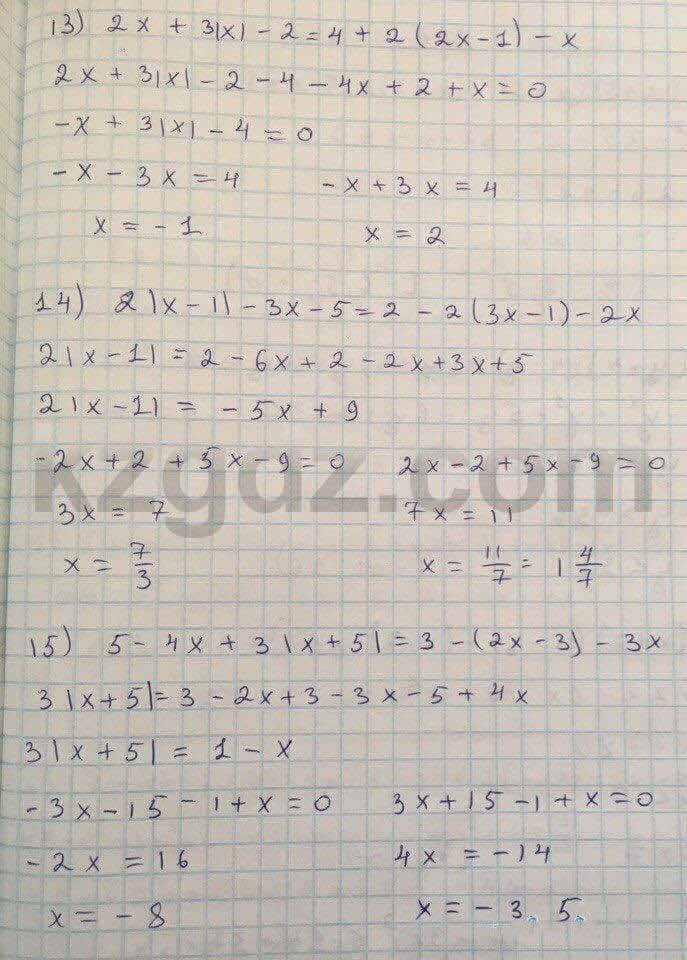 13) 2x + 3|x| - 2 = 4 + 2(2x-1) - x
2x + 3|x| - 2 - 4 - 4x + 2 + x = 0
-x + 3|x| - 4 = 0
-x - 3x = 4 -x + 3x = 4
x = -1 x = 2
14) 2|x-1| - 3x - 5 = 2 - 2(3x-1) - 2x
2|x-1| = 2 - 6x + 2 - 2x + 3x + 5
2|x-1| = -5x + 9
-2x + 2 + 5x - 9 = 0 2x - 2 + 5x - 9 = 0
3x = 7 7x = 11
x = 7/3 x = 11/7 = 1 4/7
kzgdz.com
15) 5 - 4x + 3|x+5| = 3 - (2x-3) - 3x
3|x+5| = 3 - 2x + 3 - 3x - 5 + 4x
3|x+5| = 1 - x
-3x - 15 - 1 + x = 0 3x + 15 - 1 + x = 0
-2x = 16 4x = -14
x = -8 x = -3. 5.